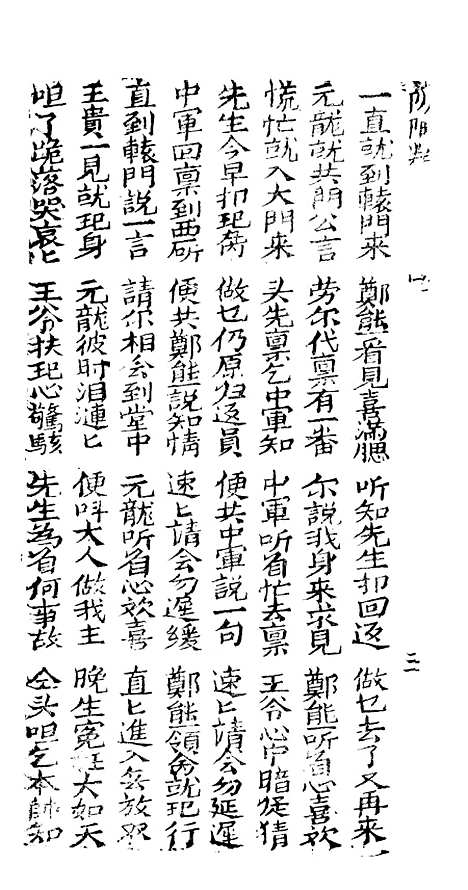 一直就到轅門來 鄭熊看見喜滿腮 听知先生扣回返 做乜去了又再來
元龍就共門公言 勞尔代禀有一番 尔說我身來求見 鄭熊听着心喜欢
慌忙就入大門來 头先禀乞中軍知 中軍听着忙去禀 王爷心中暗猜
先生今早扣起 做乜仍原归返員 便共中軍說一句 速匕請会勿延遲
中軍回禀到西 便共鄭熊說知情 速匕請会勿遲緩 鄭熊領命就起行
直到轅門說一言 請尔相会到堂中 元龍听着心欢喜 直匕進入無放
王貴一見就起身 元龍彼时泪漣匕 便呌大人做我主 晚生冤枉大如天
呾了跪落哭哀匕 王爷扶起心驚駭 先生為着何事故 全头呾乞本帥知